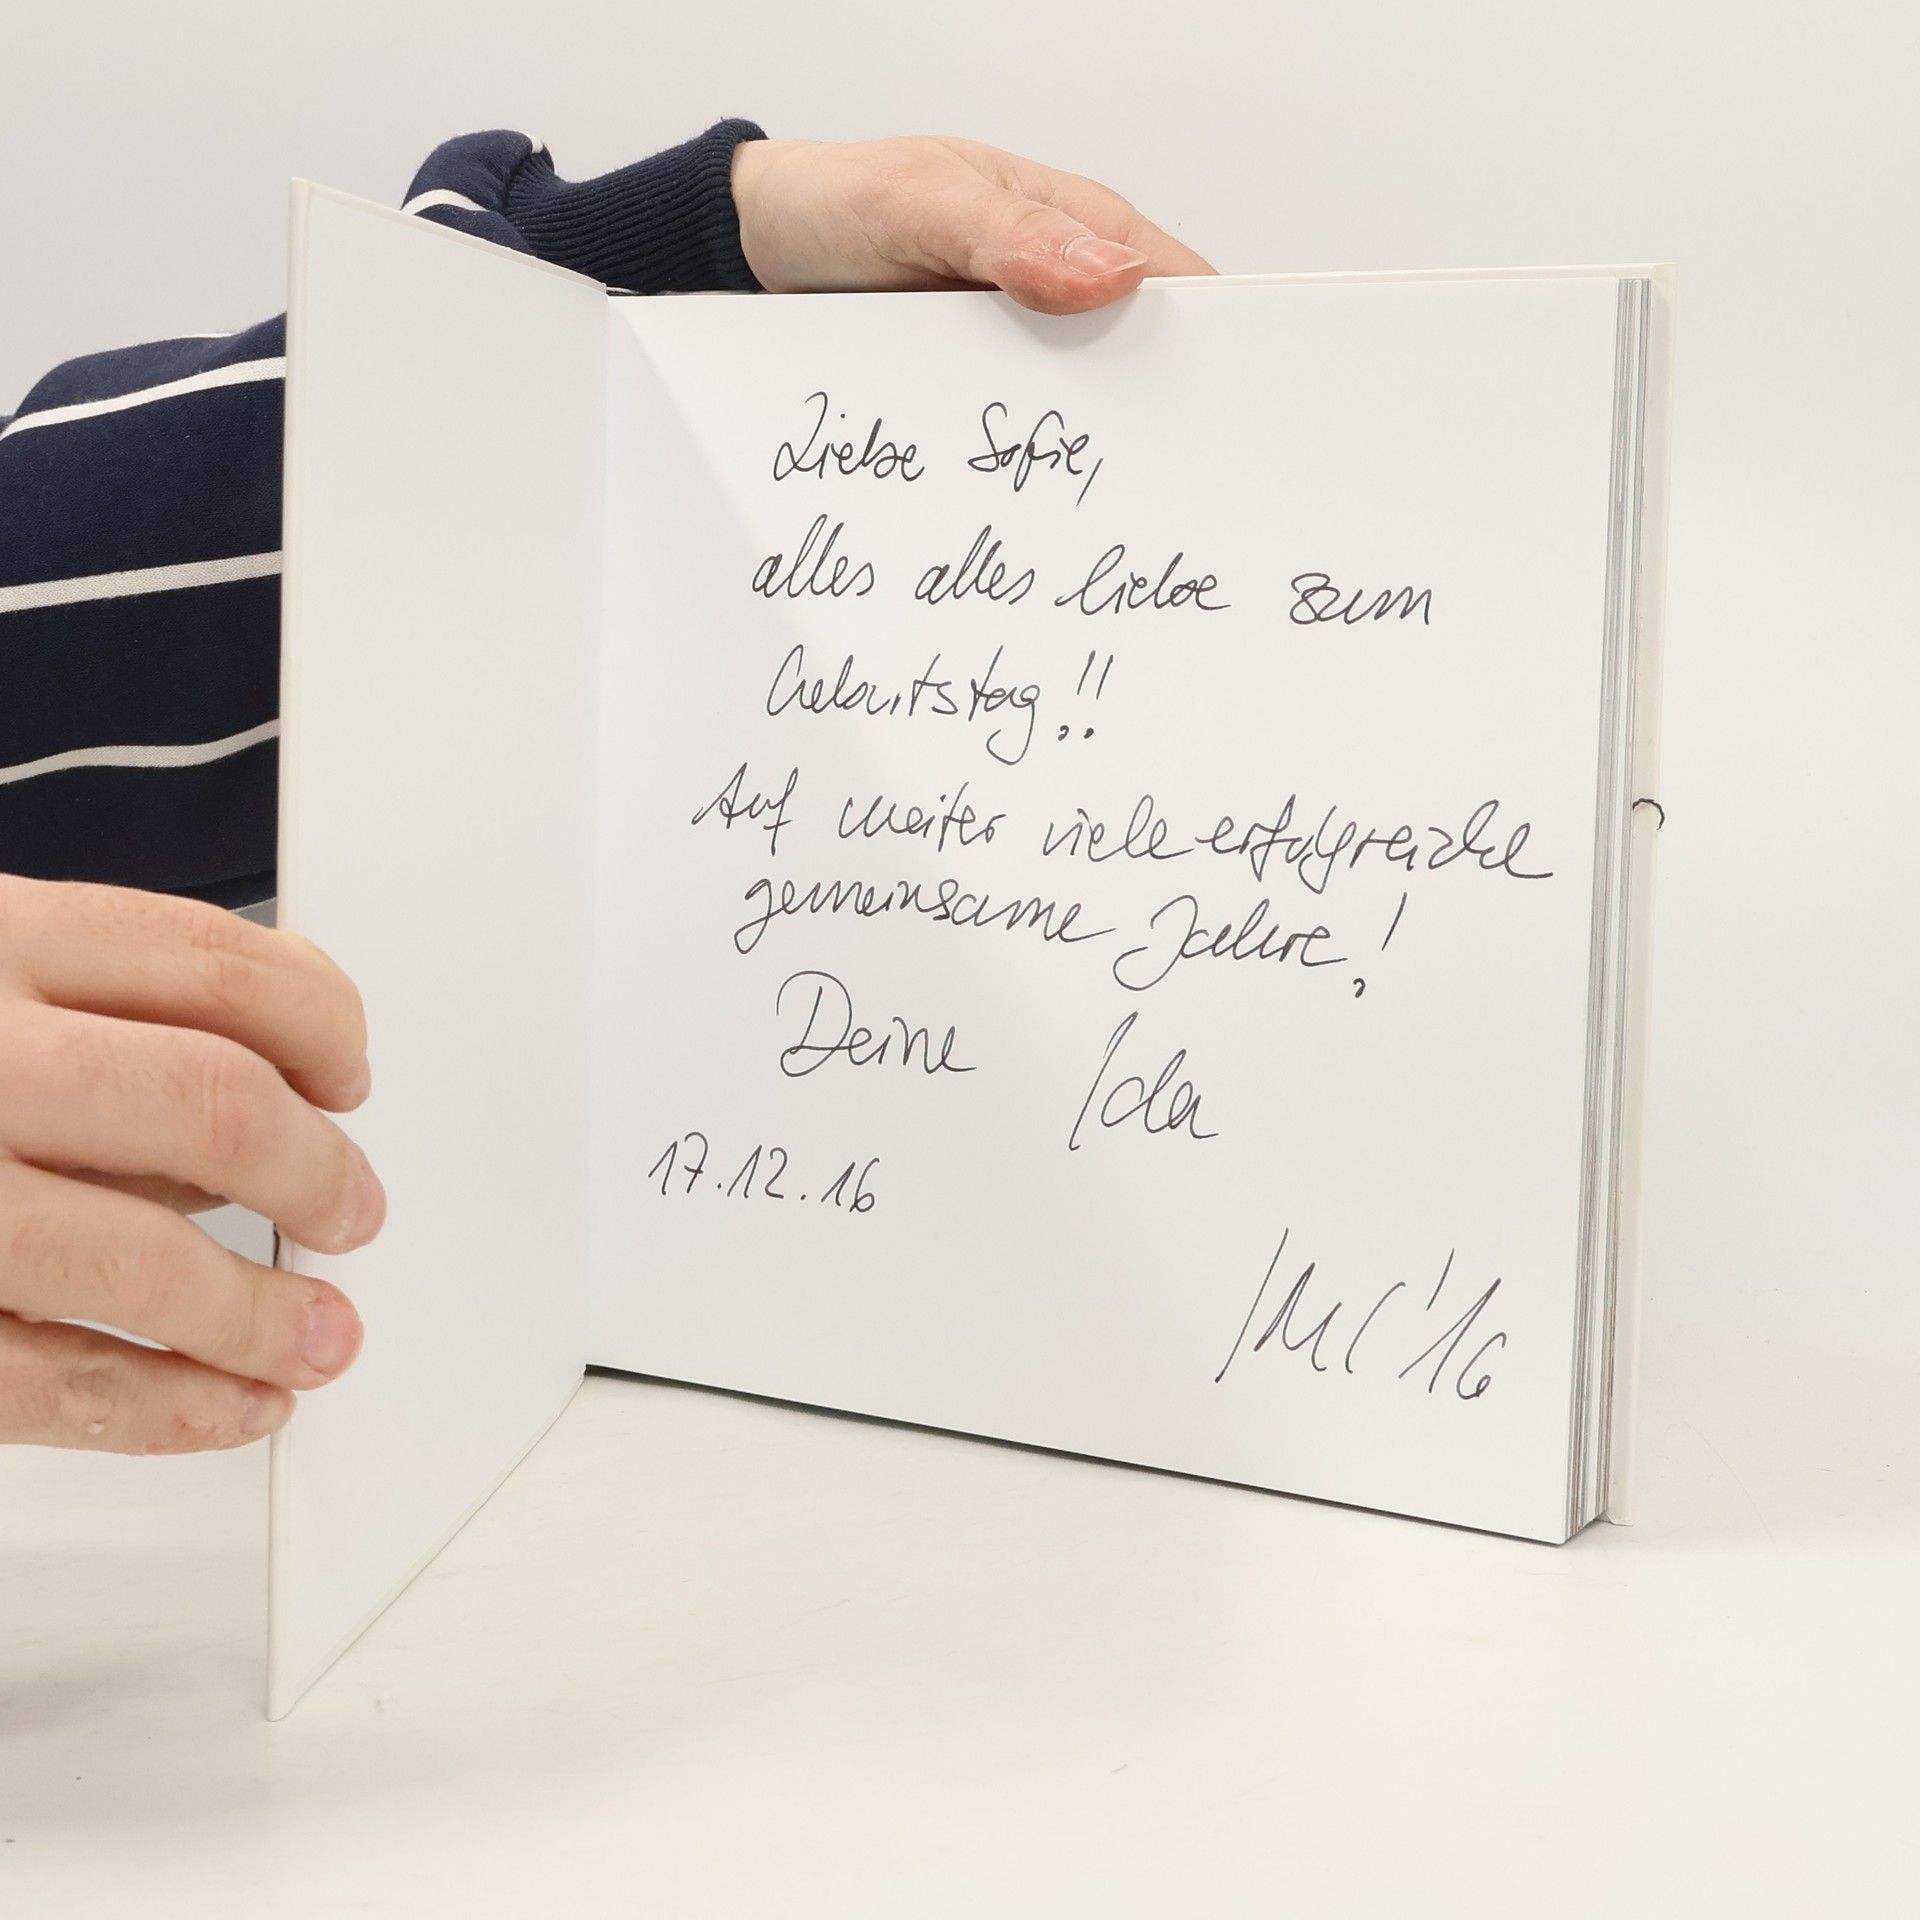 Liebe Sofie,
alles alles liebe zum
Geburtstag!!
Auf weiter viele erfolgreiche
gemeinsame Jahre!
Deine Ida
17.12.16
'16